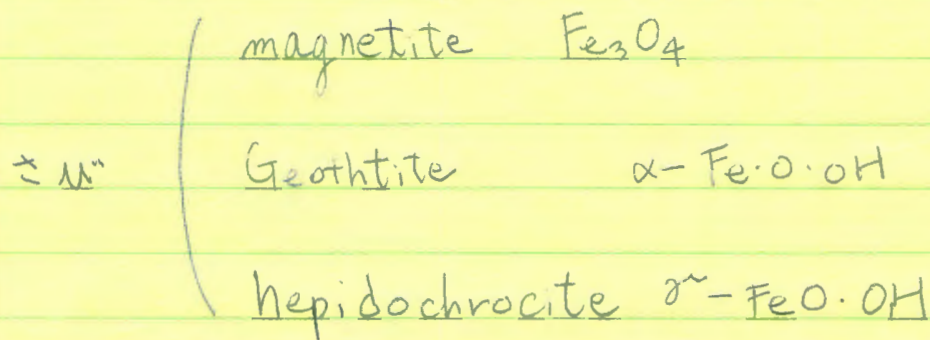 magnetite Fe3O4
さび Geothtite α-Fe・O・OH
hepidochrocite γ-FeO・OH